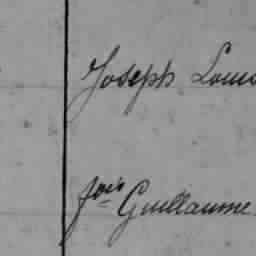 Joseph Louis
fois Guillaume